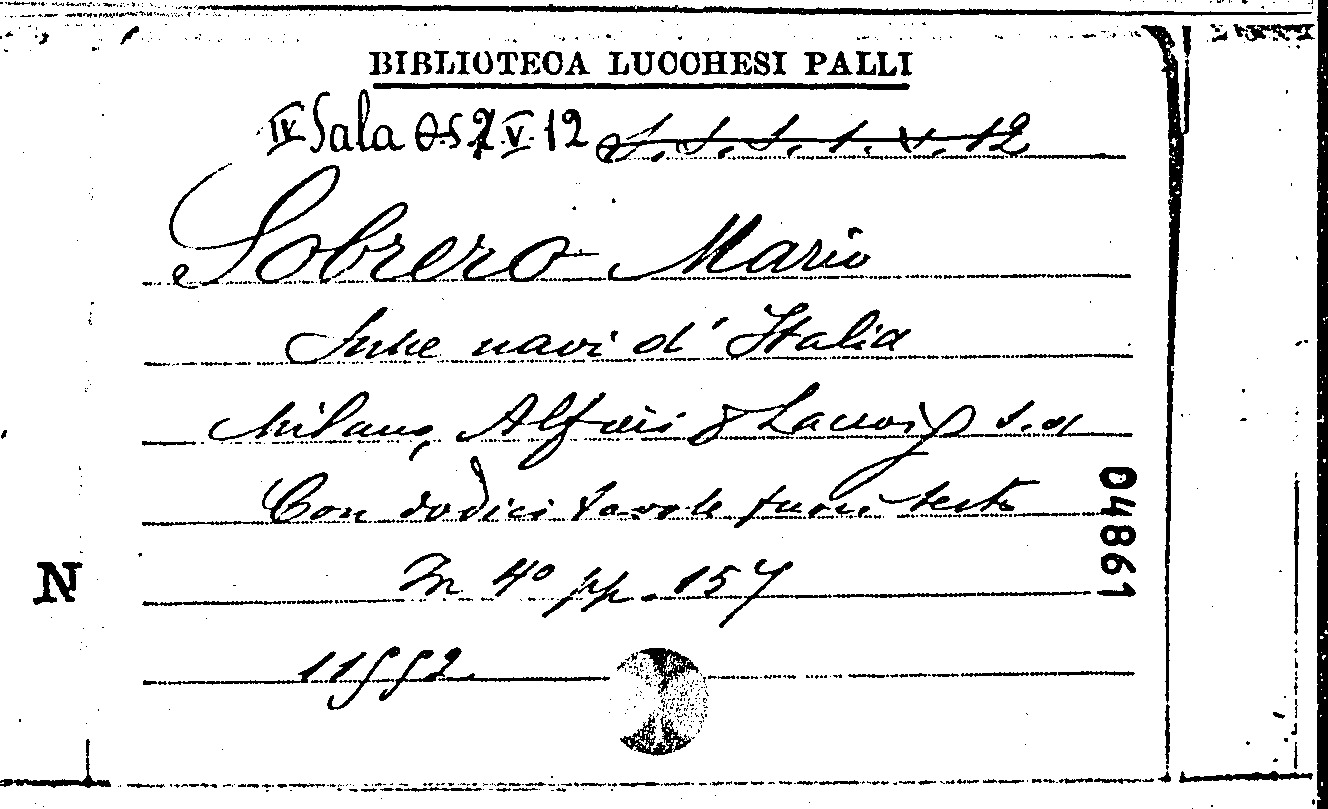 BIBLIOTECA LUCCHESI PALLI
IV Sala V 12 S. S. S. 1. V. 12
Sobrero Mario
navi d'Italia
Milano, Alfieri & Lacroix s.d
Con dodici tavole fuori testo
In 4° pp. 157
04861
N